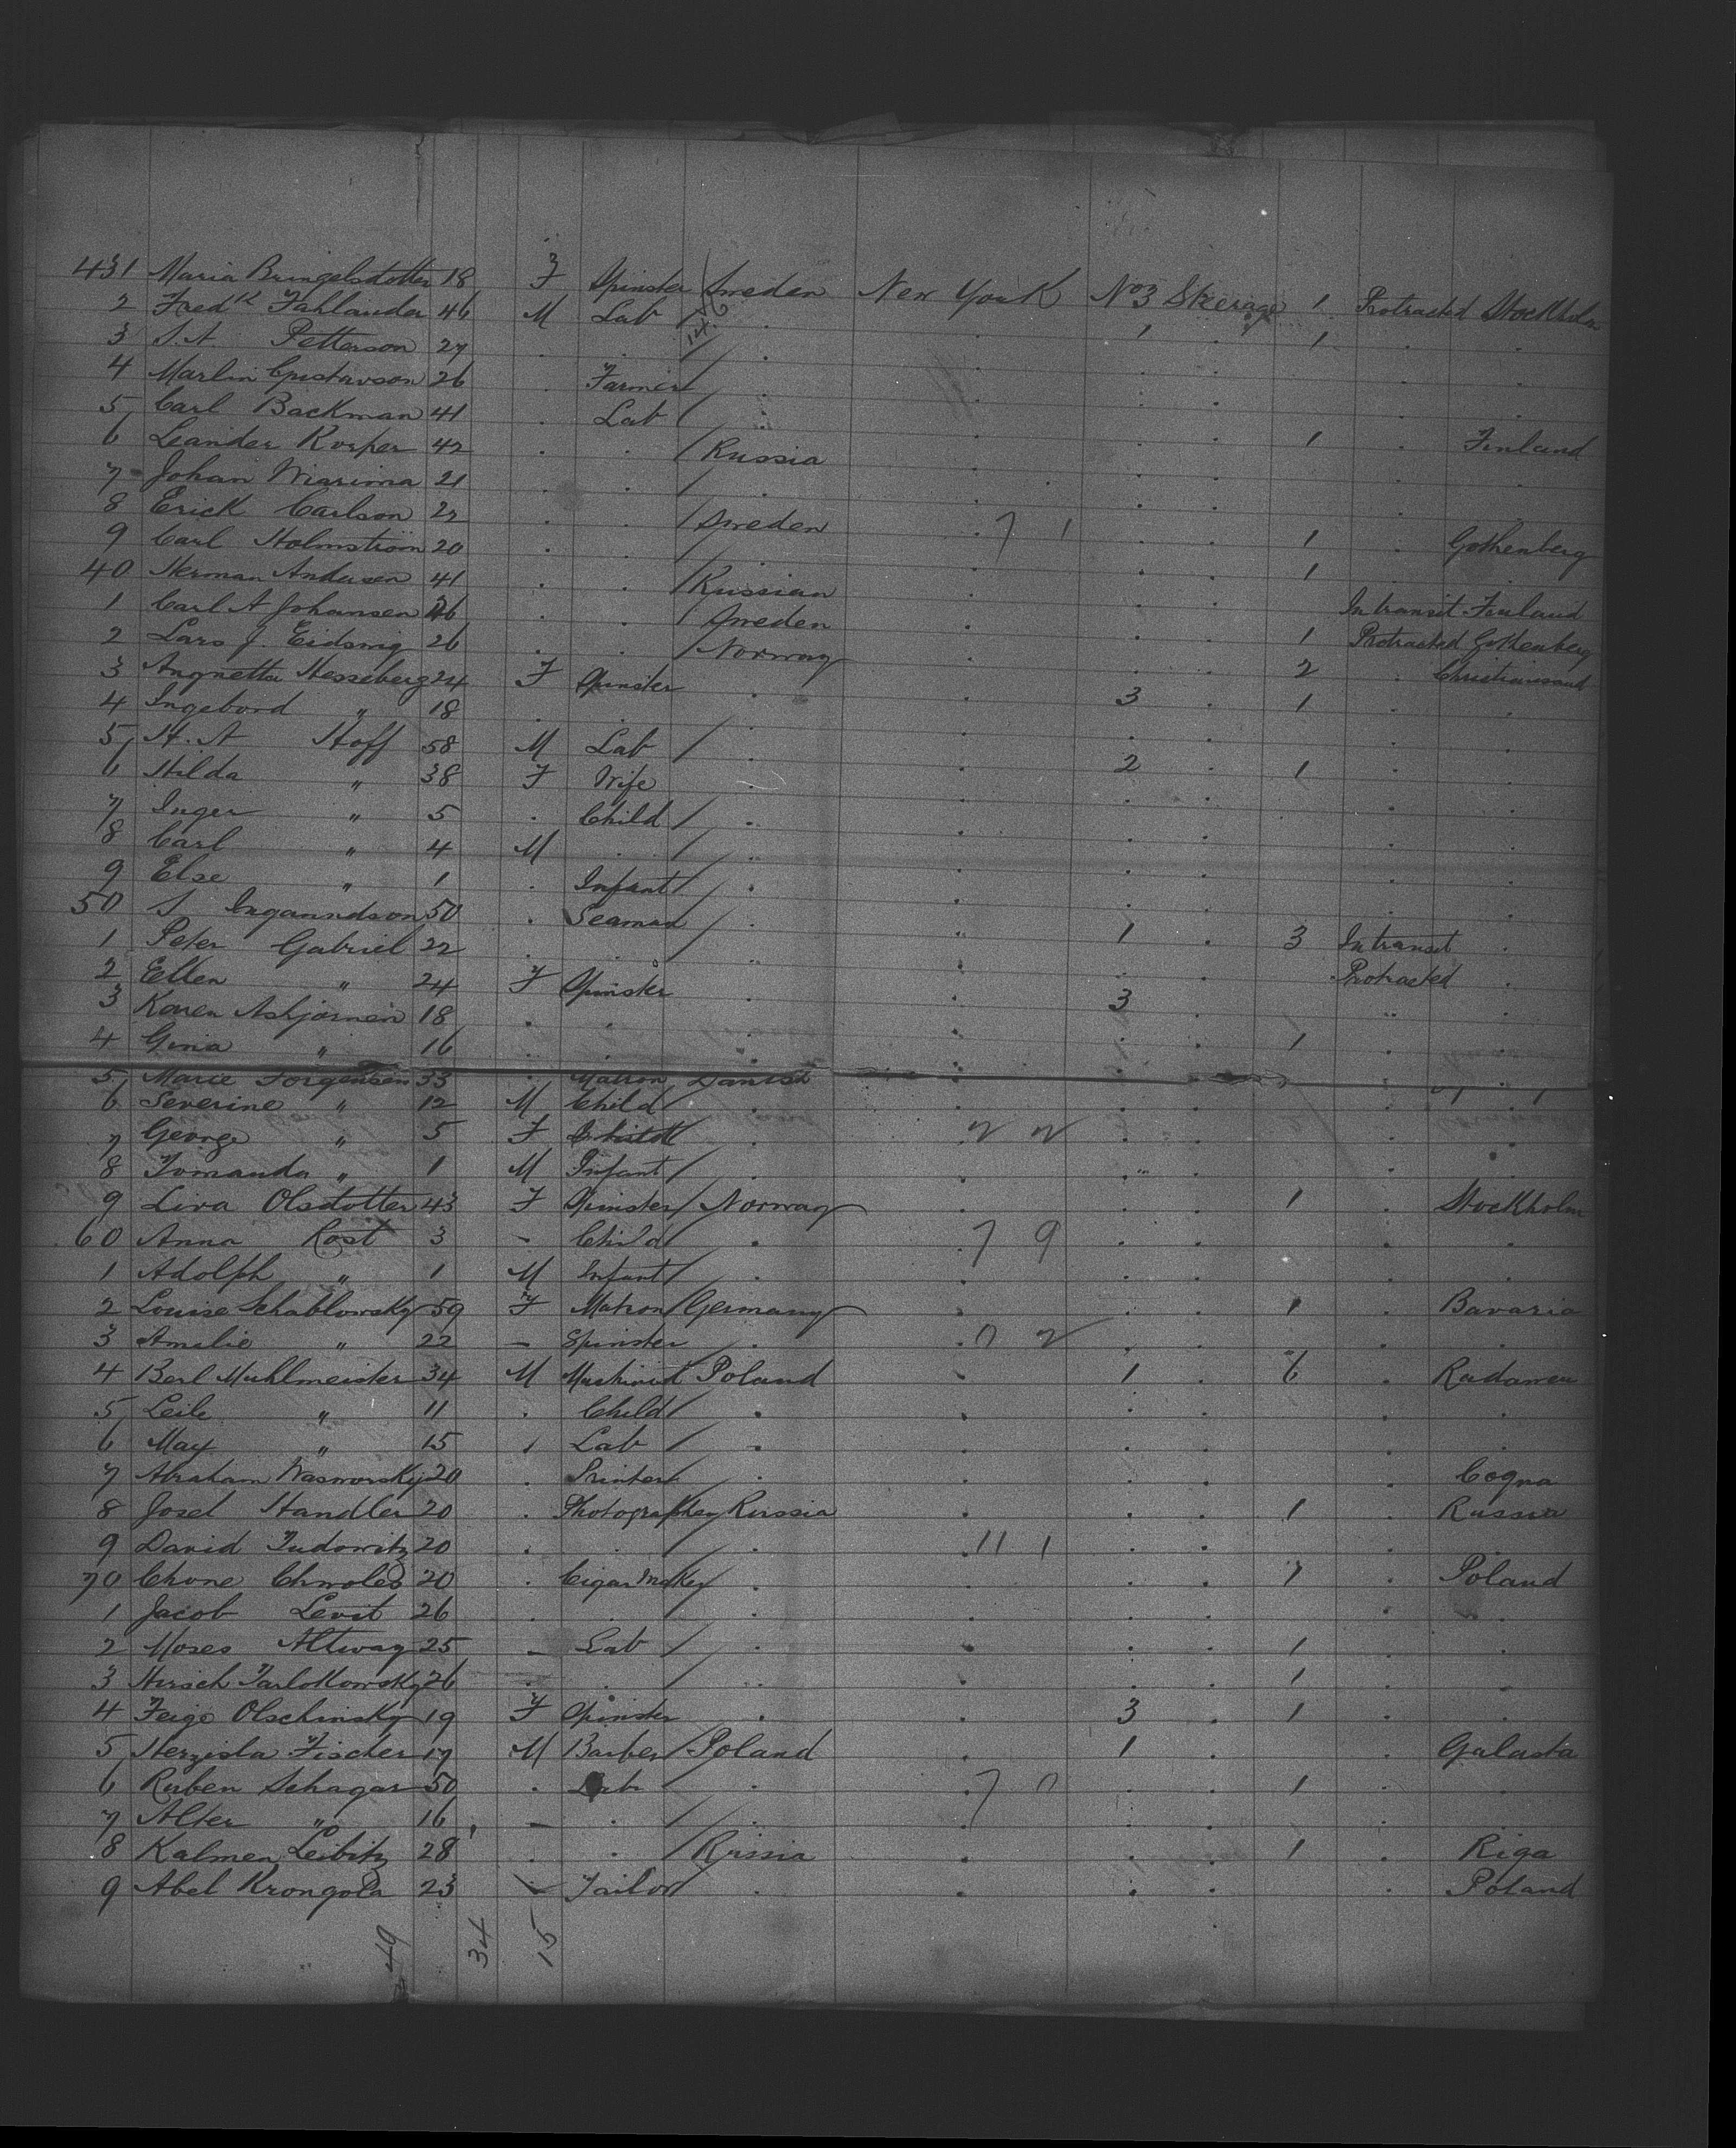 431 Maria Bringelsdotter 18 F Spinster Sweden New York No 3 Steerage 1 Protracted Stockholm
2 Fredk Fahlander 46 M Lab / . . 1 . 1 . .
3 S. A. Petterson 27 . . / . . . . . .
4 Marlin Gustavson 26 . Farmer / . . . . . .
5 Carl Backman 41 . Lab / . . . . 1 . Finland
6 Leander Korper 42 . . / Russia . . . . .
7 Johan Wiarima 21 . . / . . . . .
8 Erick Carlson 22 . . / Sweden . 7 1 . . 1 . Gothenberg
9 Carl Holmstrom 20 . . / . . . 1 .
40 Herman Andersen 41 . . / Russian . . . In transit Finland
1 Carl A Johansen 26 . . / Sweden . . . 1 Protracted Gothenberg
2 Lars J. Eidsvig 26 . . / Norway . . . 2 . Christiansand
3 Angnetta Hesseberg 24 F Spinster . . 3 . 1 . .
4 Ingebord " 18 . . . . . .
5 H. A Hoff 58 M Lab / . . 2 . 1 . .
6 Hilda " 38 F Wife . . . . . .
7 Inger " 5 . Child / . . . . . .
8 Carl " 4 M . / . . . . . .
9 Else " 1 . Infant / . . . . . .
50 S Ingamndson 50 . Seaman / . " 1 . 3 In transit .
1 Peter Gabriel 22 . . / . . . . Protracted .
2 Ellen " 24 F Spinster . . 3 . " .
3 Karen Asbjornen 18 . . . . . . 1 . .
4 Gina " 16 . . . . . . . .
5 Marie Jorgensen 33 . Matron Danish . . . .
6 Severine " 12 M Child / . . . . . .
7 George " 5 F / . . . . . .
8 Tomanda " 1 M Infant / . . . . . .
9 Liva Olsdotter 43 F Spinster / Norway . . . 1 . Stockholm
60 Anna Rost 3 - Child / . . 7 9 . . . .
1 Adolph " 1 M Infant / . . . . . .
2 Louise Schablowsky 59 F Matron / Germany . . . 1 . Bavaria
3 Amelie " 22 - Spinster . . 0 2 . . . . .
4 Berl Muhlmeister 34 M Machinist Poland . 1 . 6 . Radamen
5 Leile " 11 . Child / . . . . . .
6 May " 15 . Lab / . . . . . .
7 Abraham Wasworsky 20 . Printer / . . . . . Cogna
8 Josel Handler 20 . Photographer Russia . . . 1 . Russia
9 David Judowitz 20 . . / . . 11 1 . . . .
70 Chone Chmoles 20 . Cigar Maker / . . . . 1 . Poland
1 Jacob Levit 26 . . . . . . . .
2 Moses Altway 25 - Lab / . . . . 1 . .
3 Hirsch Tarlokowsky 26 . . / . . . . 1 . .
4 Feige Olschinsky 19 F Spinster . . 3 . 1 . .
5 Herzisla Fischer 19 M Barber / Poland . 1 . . Galasta
6 Ruben Schagar 50 . Lab / . . 7 0 . . 1 . .
7 Alter " 16 - . / . . . . . .
8 Kalmen Leibitz 28 . . / Russia . . . 1 . Riga
9 Abel Krongold 23 - Tailor / . . . . . Poland
49 34 15